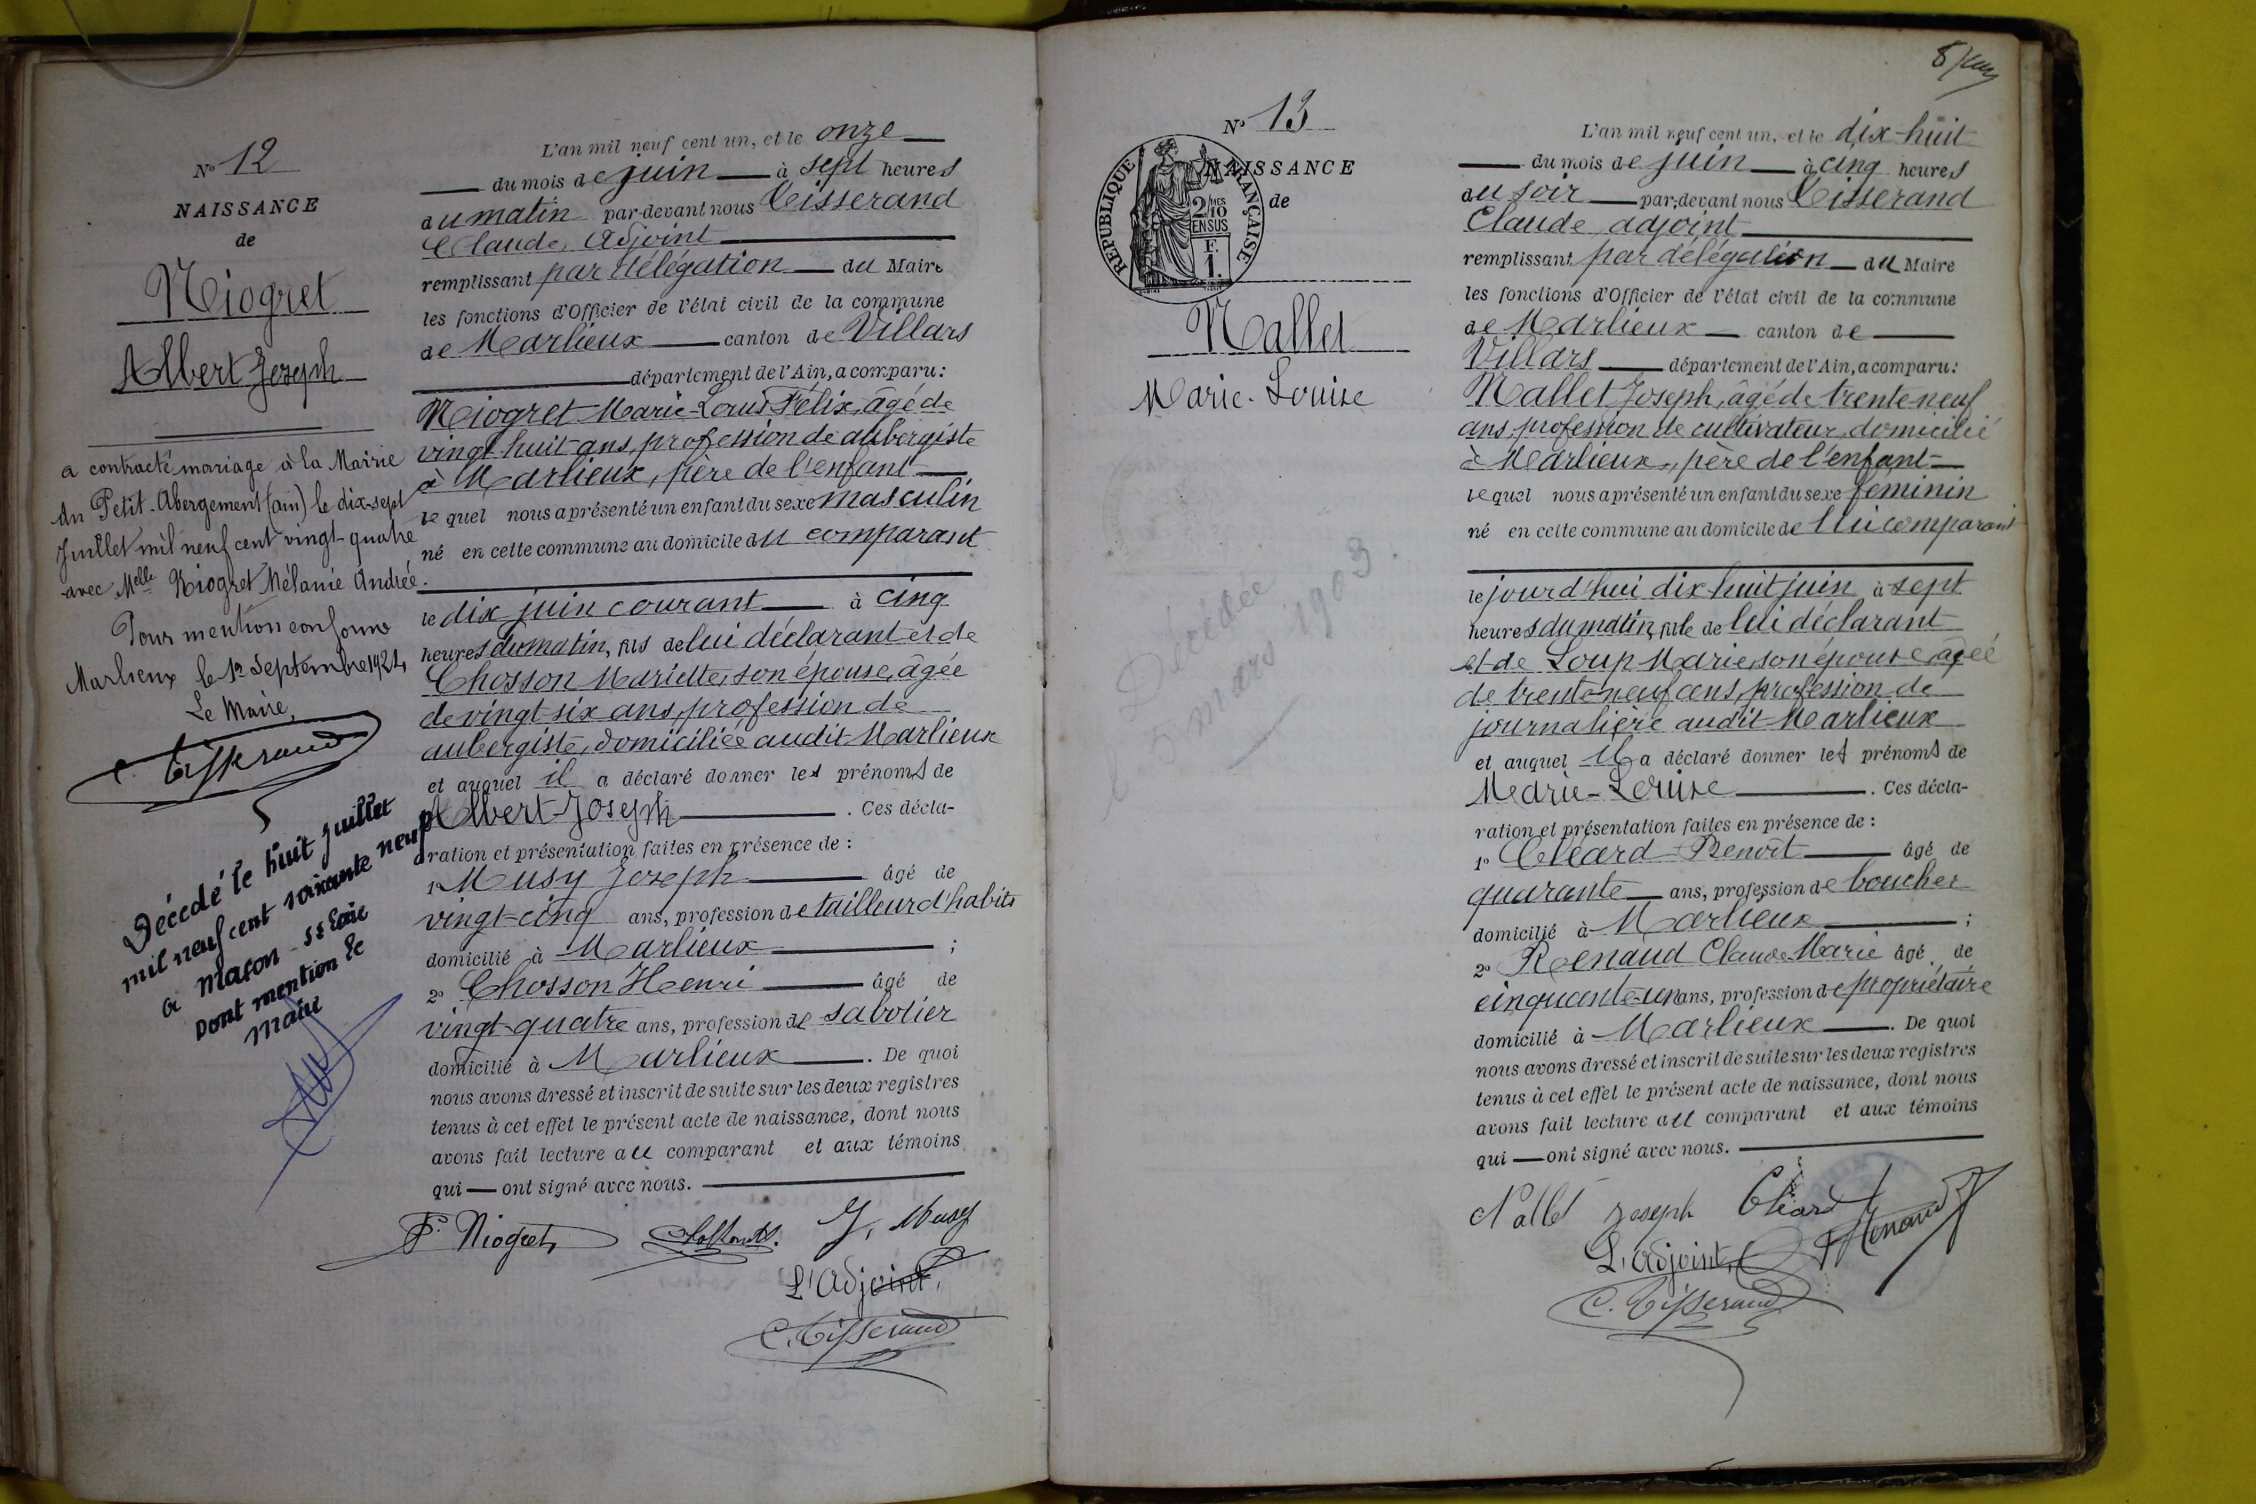 Nº 12
NAISSANCE
de
Niogret
Albert Joseph
a contracté mariage à la Mairie
du Petit-Abergement (ain) le dix-sept
Juillet mil neuf cent vingt-quatre
avec Melle Niogret Mélanie Andrée.
Pour mention conforme
Marlieux le 12 Septembre 1924
Le Maire,
C. Tisserand
Décédé le huit juillet
mil neuf cent soixante neuf
à Macon - S& Loire
Dont mention le
Maire
L'an mil neuf cent un, et le onze
du mois de juin à sept heures
du matin par-devant nous Tisserand
Claude, Adjoint
remplissant par délégation du Maire
les fonctions d'Officier de l'état civil de la commune
de Marlieux canton de Villars
département de l'Ain, a comparu:
Niogret Marie-Louis Félix, âgé de
vingt huit ans, profession de aubergiste
à Marlieux, père de l'enfant
le quel nous a présenté un enfant du sexe masculin
né en cette commune au domicile du comparant
le dix juin courant à cinq
heures du matin, fils de lui déclarant et de
Chosson Mariette, son épouse, âgée
de vingt six ans, profession de
aubergiste, domiciliée audit Marlieux
et auquel il a déclaré donner les prénoms de
Albert-Joseph. Ces décla-
ration et présentation faites en présence de :
1º Musy Joseph âgé de
vingt-cinq ans, profession de tailleur d'habits
domicilié à Marlieux ;
2º Chosson Henri âgé de
vingt-quatre ans, profession de sabotier
domicilié à Marlieux. De quoi
nous avons dressé et inscrit de suite sur les deux registres
tenus à cet effet le présent acte de naissance, dont nous
avons fait lecture au comparant et aux témoins
qui — ont signé avec nous.
F. Niogret J. Musy
L'Adjoint,
C. Tisserand
Nº 13
NAISSANCE
de
REPUBLIQUE FRANÇAISE
2/10 MES
EN SUS
F.
1.
Nallet
Marie-Louise
Décédée
le 5 mars 1903.
L'an mil neuf cent un, et le dix-huit
du mois de juin à cinq heures
du soir par-devant nous Tisserand
Claude adjoint
remplissant par délégation du Maire
les fonctions d'Officier de l'état civil de la commune
de Marlieux canton de
Villars département de l'Ain, a comparu:
Nallet Joseph, âgé de trente-neuf
ans, profession de cultivateur, domicilié
à Marlieux, père de l'enfant
le quel nous a présenté un enfant du sexe feminin
né en cette commune au domicile de lui comparant
le jourd'hui dix huit juin à sept
heures du matin, fille de lui déclarant
et de Loup Marie, son épouse, âgée
de trente-neuf ans, profession de
journalière audit Marlieux
et auquel il a déclaré donner les prénoms de
Marie-Louise. Ces décla-
ration et présentation faites en présence de :
1º Cléard Benoît âgé de
quarante ans, profession de boucher
domicilié à Marlieux ;
2º Renaud Claude Marie âgé de
cinquante-un ans, profession de propriétaire
domicilié à Marlieux. De quoi
nous avons dressé et inscrit de suite sur les deux registres
tenus à cet effet le présent acte de naissance, dont nous
avons fait lecture au comparant et aux témoins
qui — ont signé avec nous.
Nallet Joseph Cléard Renaud
L'adjoint,
C. Tisserand